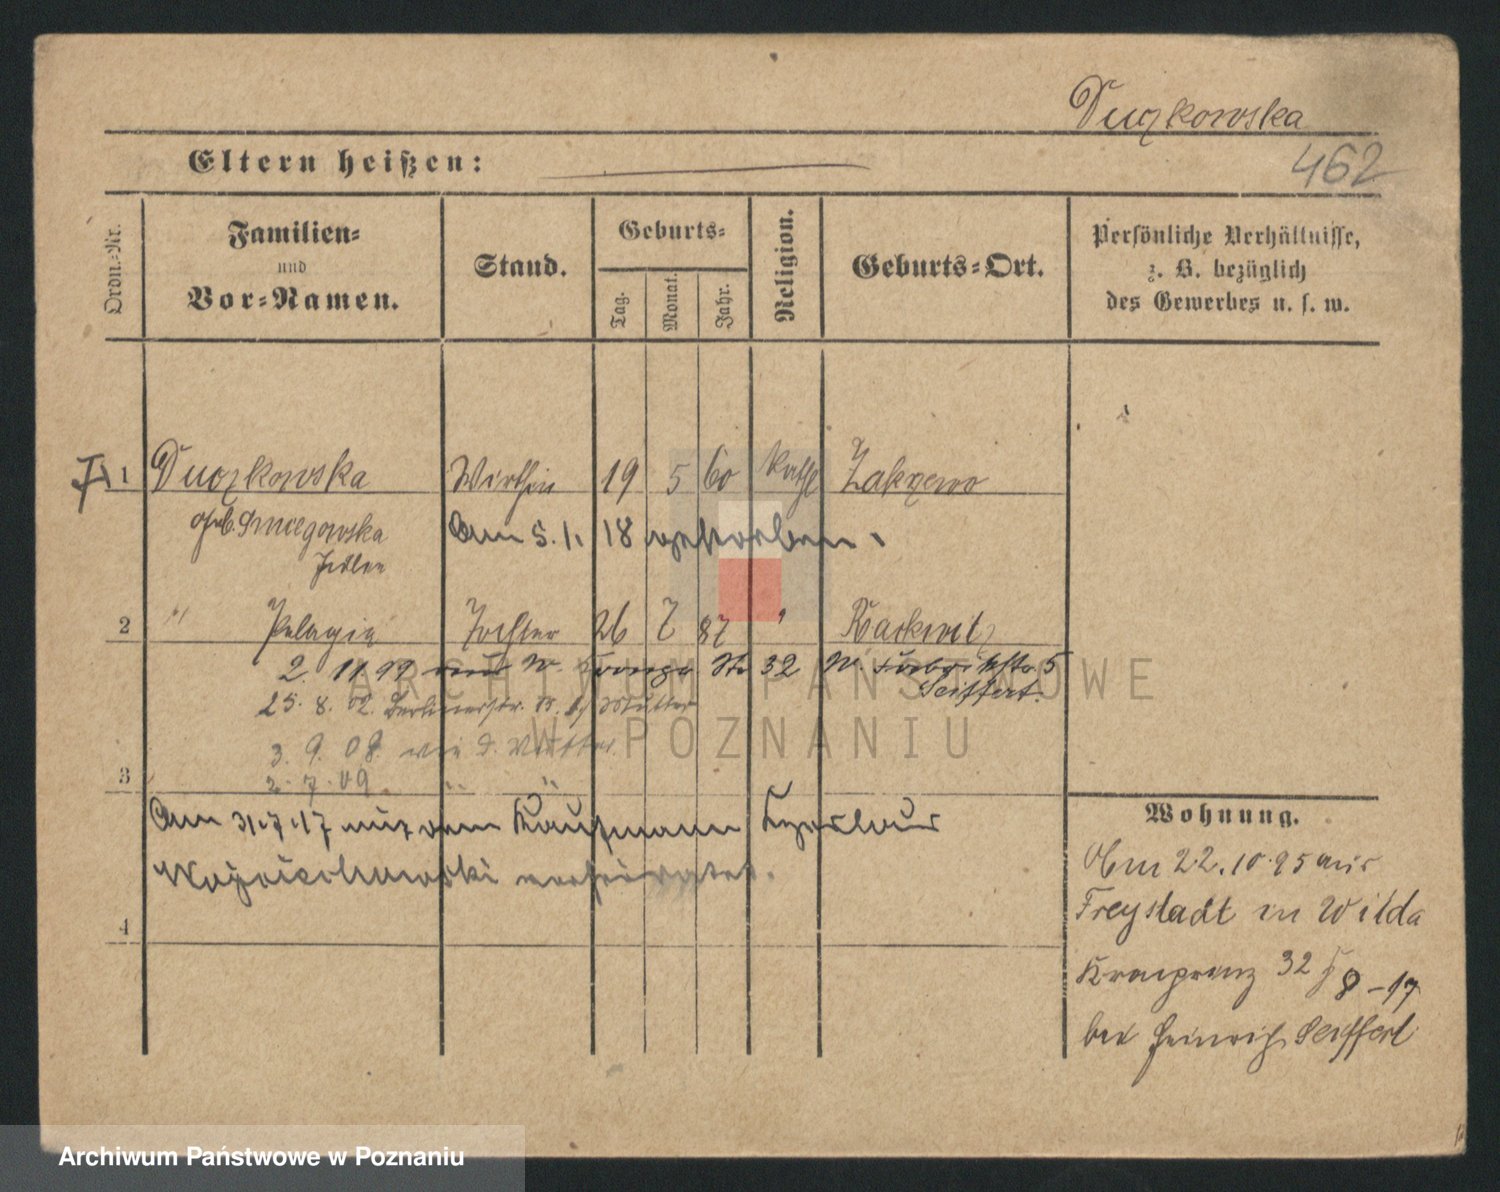 Duczkowska
Eltern heißen:
462
Ordn.-Nr.
Familien-
und
Vor-Namen.
Stand.
Geburts-
Tag.
Monat.
Jahr.
Religion.
Geburts-Ort.
Persönliche Verhältnisse,
z. B. bezüglich
des Gewerbes u. s. w.
1 Duczkowska Wirthin 19 5 60 Kath
geb.
Am 5. 1. 18 gestorben.
2 " Pelagia Tochter 26 7 87 " Rackwitz
2. 11 99 W. Str 32 W. 5
Seiffert.
25. 8. 02. Berlinerstr. Mutter
3. 9. 08.
3
2. 7. 09.
Am 31.7.17 mit dem Kaufmann
verheiratet.
4
Wohnung.
Am 22. 10. 95 aus
Freystadt in Wilda
Kronprinz 32 8-17
bei Heinrich Seiffert
ARCHIWUM PAŃSTWOWE
W POZNANIU
Archiwum Państwowe w Poznaniu